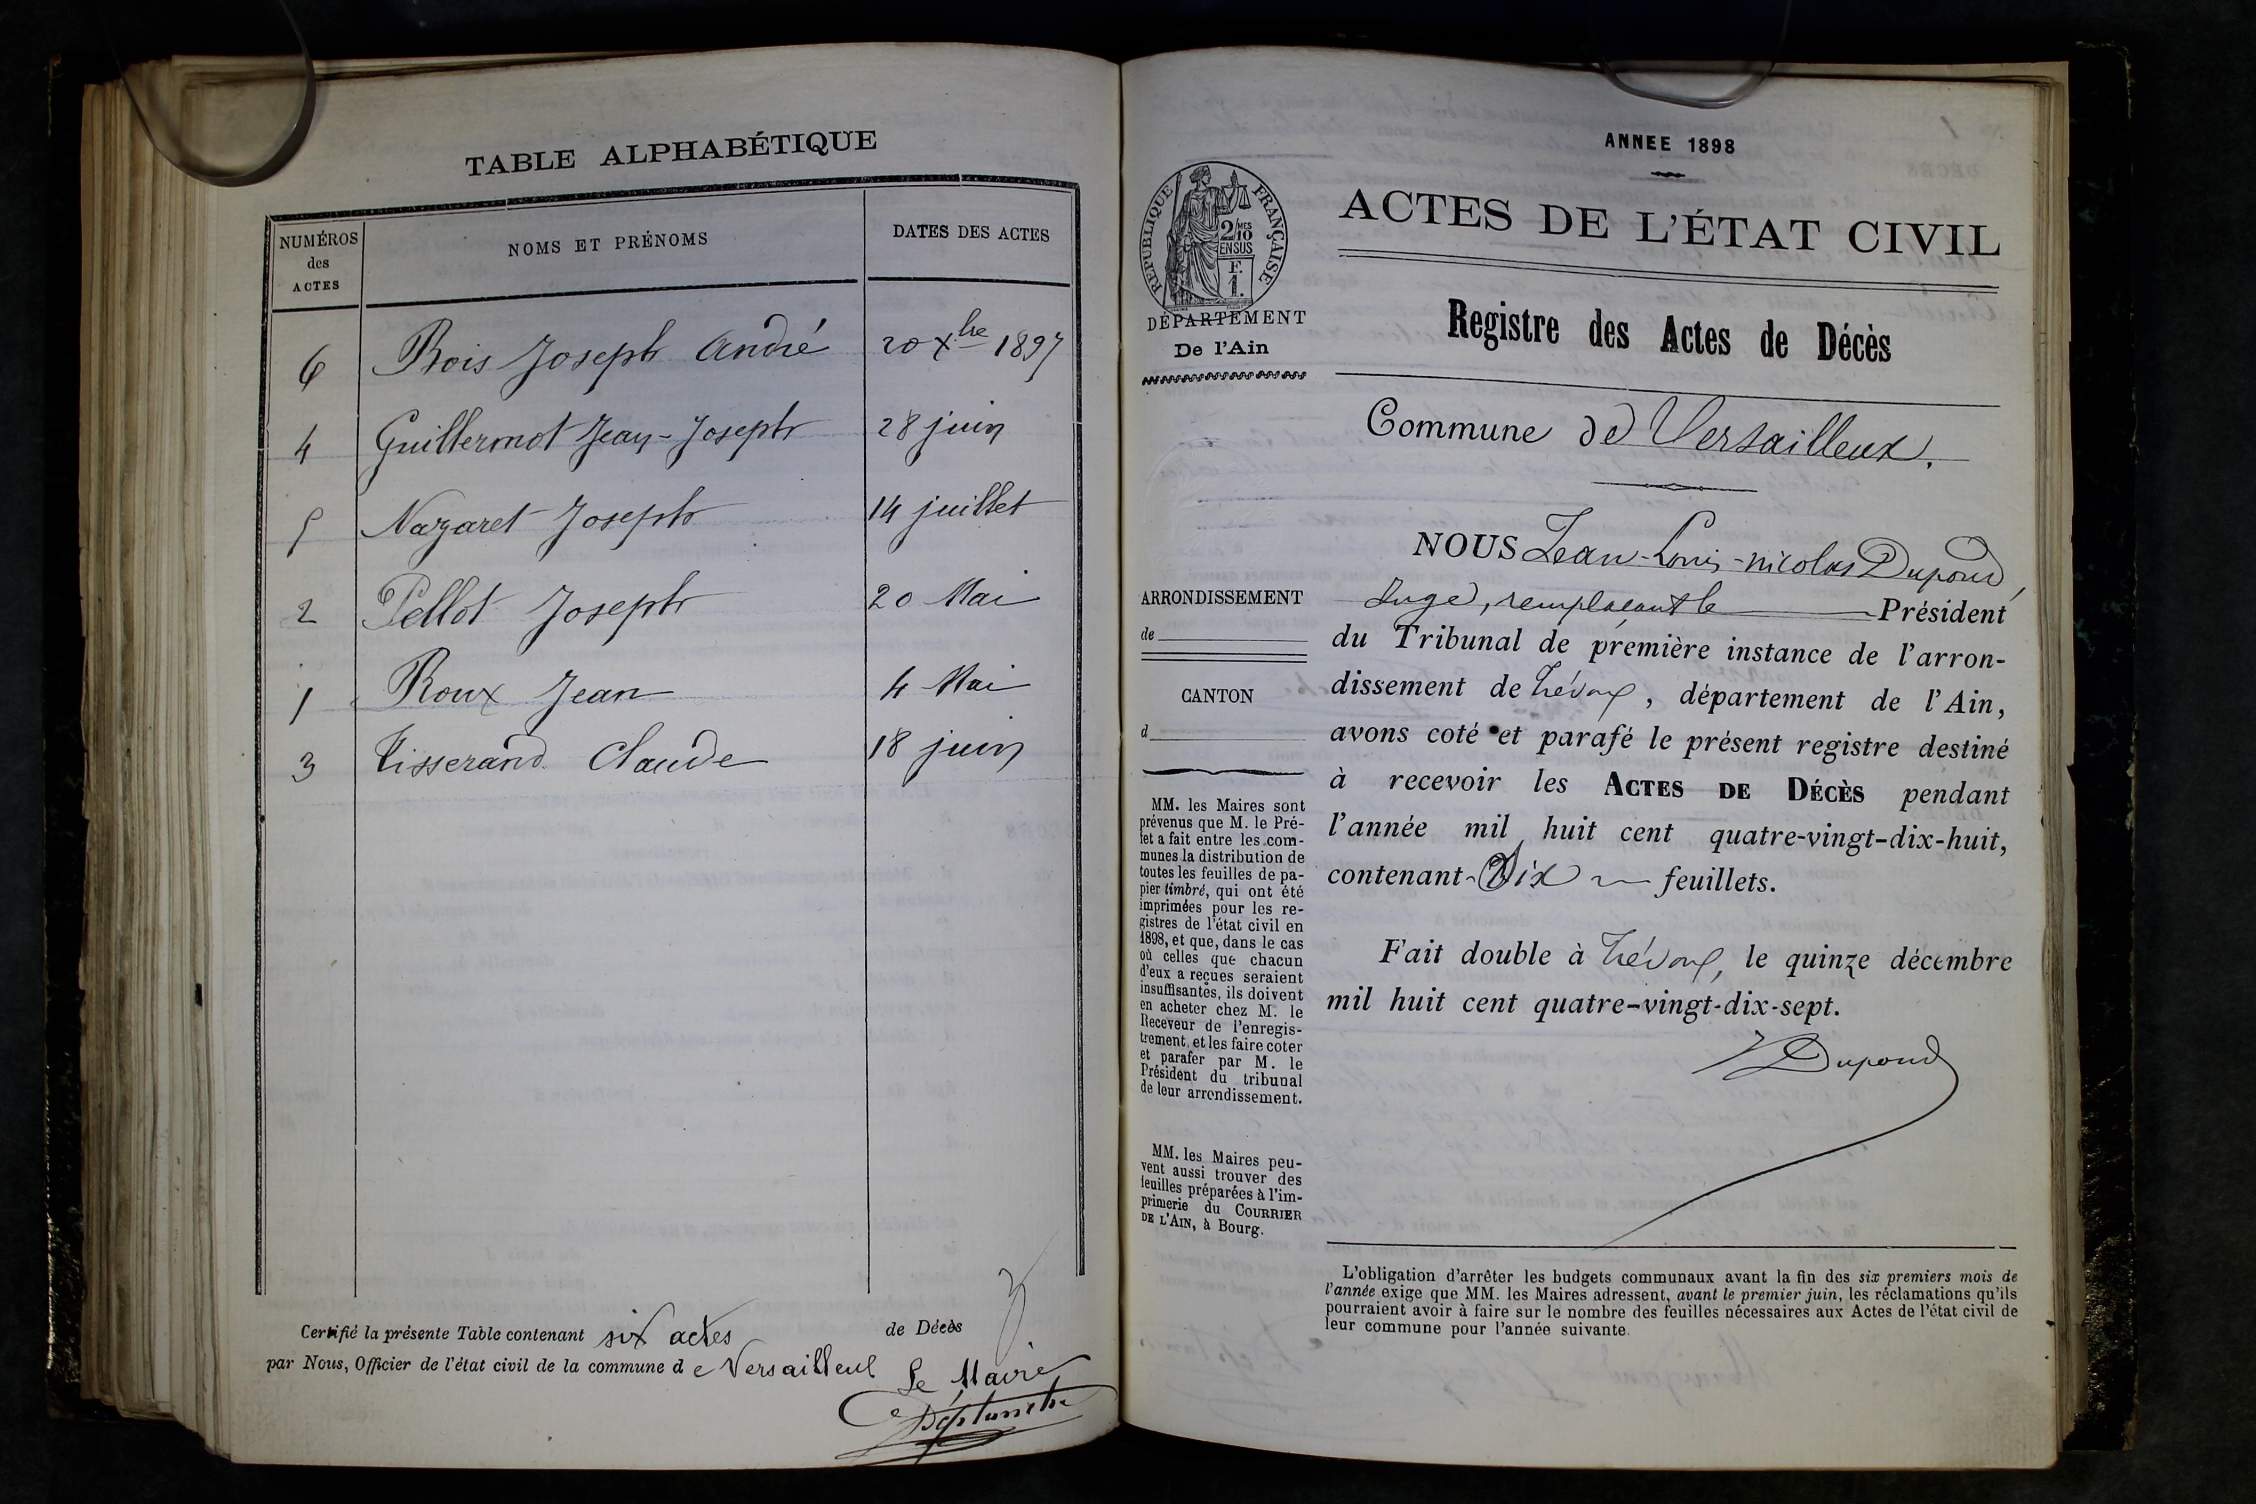 TABLE ALPHABÉTIQUE
NUMÉROS des ACTES | NOMS ET PRÉNOMS | DATES DES ACTES
6 Bois Joseph André 20 Xbre 1897
4 Guillermot Jean-Joseph 28 juin
5 Nazaret Joseph 14 juillet
2 Pellot Joseph 20 Mai
1 Roux Jean 4 Mai
3 Tisserand Claude 18 juin
Certifié la présente Table contenant six actes de Décès
par Nous, Officier de l'état civil de la commune de Versailleux
Le Maire
ANNEE 1898
ACTES DE L'ÉTAT CIVIL
RÉPUBLIQUE FRANÇAISE
2/MES
10
EN SUS
F.
1.
DÉPARTEMENT
De l'Ain
Registre des Actes de Décès
Commune de Versailleux.
ARRONDISSEMENT
de
CANTON
d
MM. les Maires sont
prévenus que M. le Pré-
fet a fait entre les com-
munes la distribution de
toutes les feuilles de pa-
pier timbré, qui ont été
imprimées pour les re-
gistres de l'état civil en
1898, et que, dans le cas
où celles que chacun
d'eux a reçues seraient
insuffisantes, ils doivent
en acheter chez M. le
Receveur de l'enregis-
trement, et les faire coter
et parafer par M. le
Président du tribunal
de leur arrondissement.
MM. les Maires peu-
vent aussi trouver des
feuilles préparées à l'im-
primerie du COURRIER
DE L'AIN, à Bourg.
NOUS Jean-Louis-Nicolas Dupond,
Juge, remplaçant le Président
du Tribunal de première instance de l'arron-
dissement de Trévoux, département de l'Ain,
avons coté et parafé le présent registre destiné
à recevoir les ACTES DE DÉCÈS pendant
l'année mil huit cent quatre-vingt-dix-huit,
contenant Dix feuillets.
Fait double à Trévoux, le quinze décembre
mil huit cent quatre-vingt-dix-sept.
Dupond
L'obligation d'arrêter les budgets communaux avant la fin des six premiers mois de
l'année exige que MM. les Maires adressent, avant le premier juin, les réclamations qu'ils
pourraient avoir à faire sur le nombre des feuilles nécessaires aux Actes de l'état civil de
leur commune pour l'année suivante.